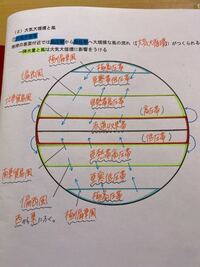 (2) 大気大循環と風
地球の表面付近では
から
へ大規模な風の流れ は(大気大循環)がつくられる
→降水量と風は大気大循環に影響をうける
(偏西風)
極偏東風
極高圧帯
亜寒帯低圧帯
北東貿易風
亜熱帯高圧帯
(高圧帯)
赤道低圧帯
(低圧帯)
亜熱帯高圧帯
南東貿易風
亜寒帯低圧帯
(偏西風)
極高圧帯
西から東にふく。
極偏東風